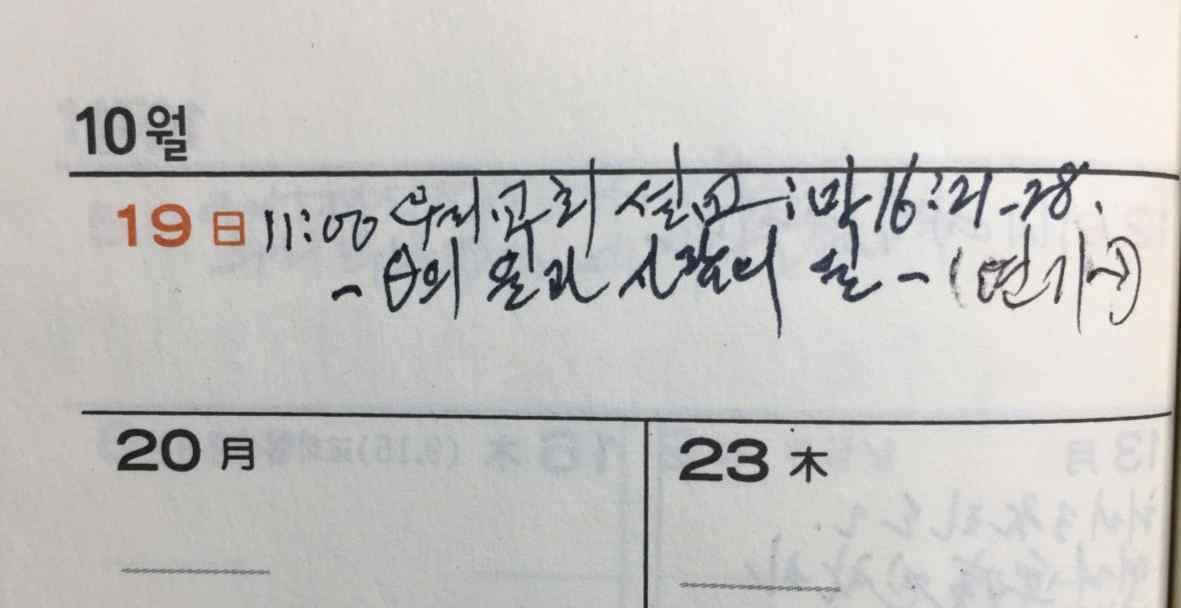 10월
19 日 11:00 우리교회 설교 : 막 16:21-28.
- 의 일과 사람의 일 - (연기→)
20 月
23 木